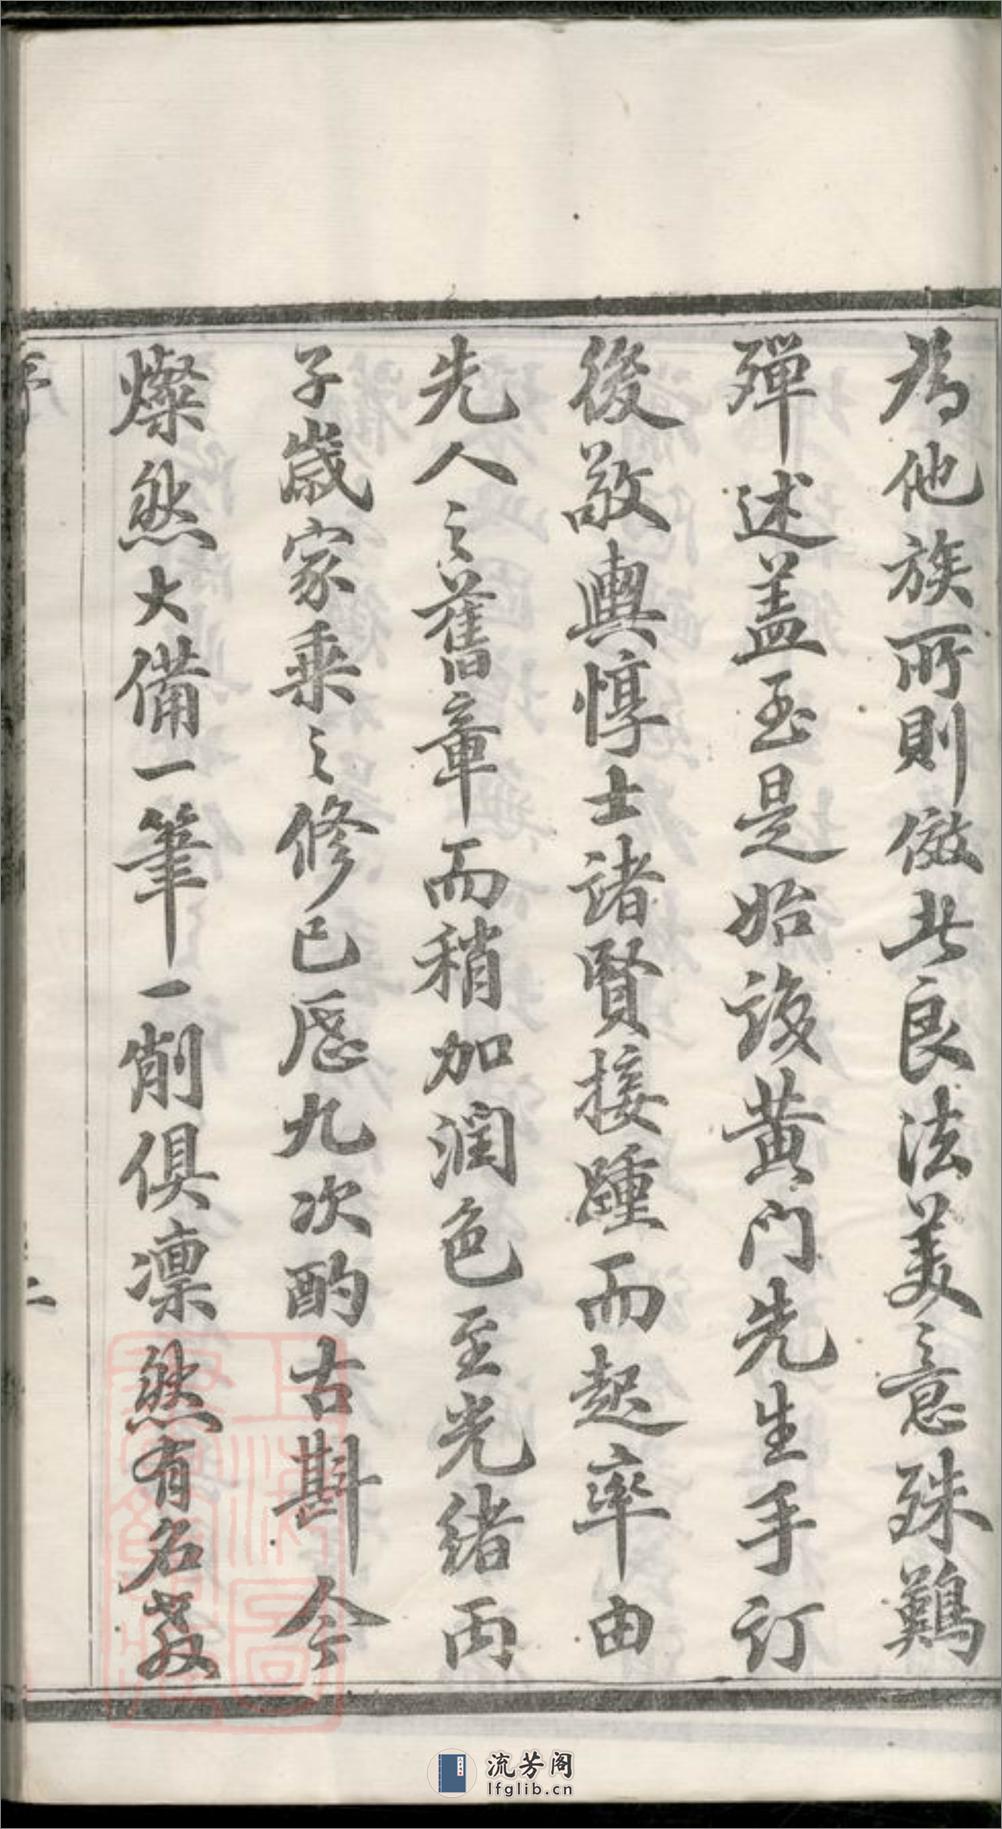 為他族所則倣其良法美意殊難
殫述蓋至是始設黃门先生手订
後敬輿惇士诸賢接踵而起率由
先人之舊章而稍加潤色至光緒丙
子歲家乘之修已歷九次酌古斟今
燦然大備一筆一削俱凛然有名教
序
二
上海圖書館藏
流芳阁
lfglib.cn